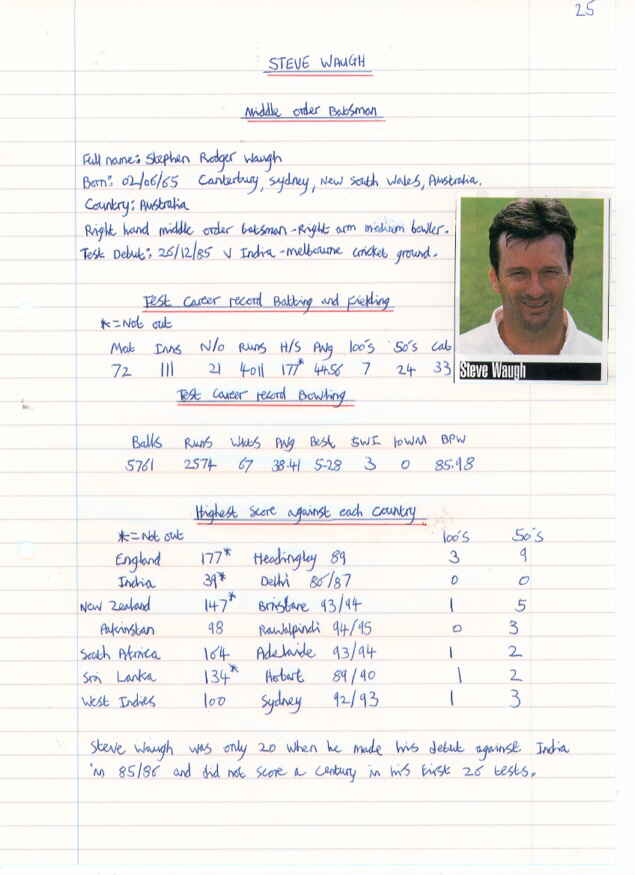 25
STEVE WAUGH
Middle order Batsman
Full name: Stephen Rodger Waugh
Born: 02/06/65 Canterbury, Sydney, New South Wales, Australia.
Country: Australia
Right hand middle order batsman - Right arm medium bowler.
Test Debut: 26/12/85 V India - melbourne cricket ground.
Test Career record Batting and Fielding
*=Not out
Mat Inns N/O Runs H/S Avg 100's 50's Cat
72 111 21 4011 177* 44.56 7 24 33
Steve Waugh
Test Career record Bowling
Balls Runs Wkts Avg Best 5WI 10WM BPW
5761 2574 67 38.41 5-28 3 0 85.98
Highest Score against each Country
*=Not out 100's 50's
England 177* Headingley 89 3 9
India 39* Delhi 86/87 0 0
New Zealand 147* Brisbane 93/94 1 5
Pakinstan 98 Rawalpindi 94/95 0 3
South Africa 164 Adelaide 93/94 1 2
Sri Lanka 134* Hobart 89/90 1 2
West Indies 100 Sydney 92/93 1 3
Steve Waugh was only 20 when he made his debut against India
in 85/86 and did not score a century in his first 26 tests.